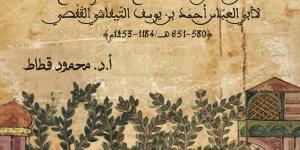 لأبي العباس أحمد بن يوسف التيفاشي القفصي
«580-651 هـ/1184-1253م»
أ.د. محمود قطاط